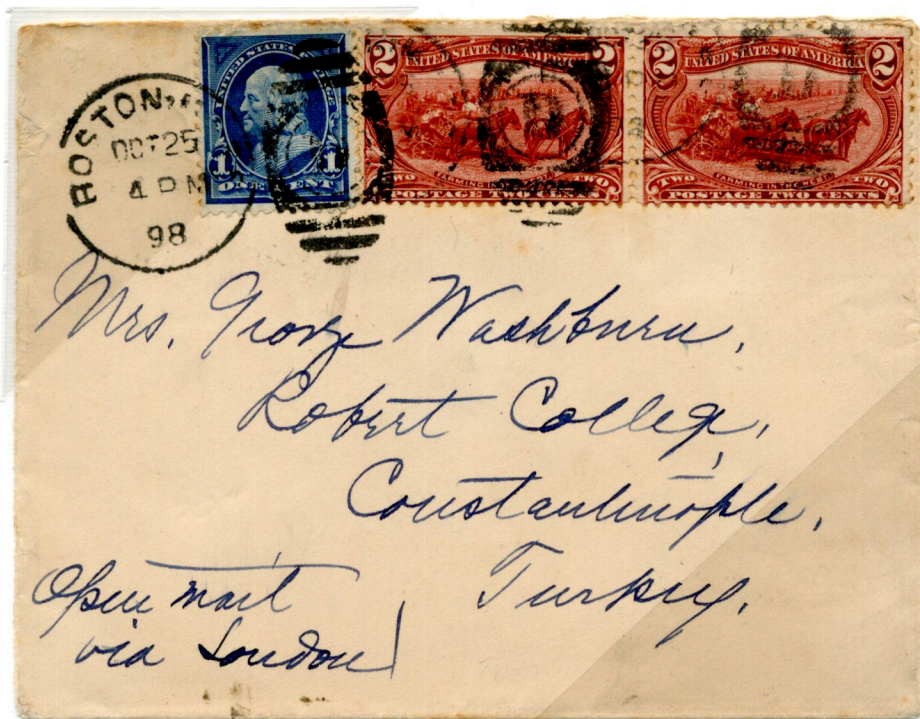 BOSTON, M
OCT 25
4 PM
98
UNITED STATES POSTAGE
1 1
ONE CENT
2 2
UNITED STATES OF AMERICA
FARMING IN THE WEST
TWO TWO
POSTAGE TWO CENTS
2 2
UNITED STATES OF AMERICA
FARMING IN THE WEST
TWO TWO
POSTAGE TWO CENTS
Mrs. George Washburn,
Robert College,
Constantinople,
Turkey.
Open mail
via London